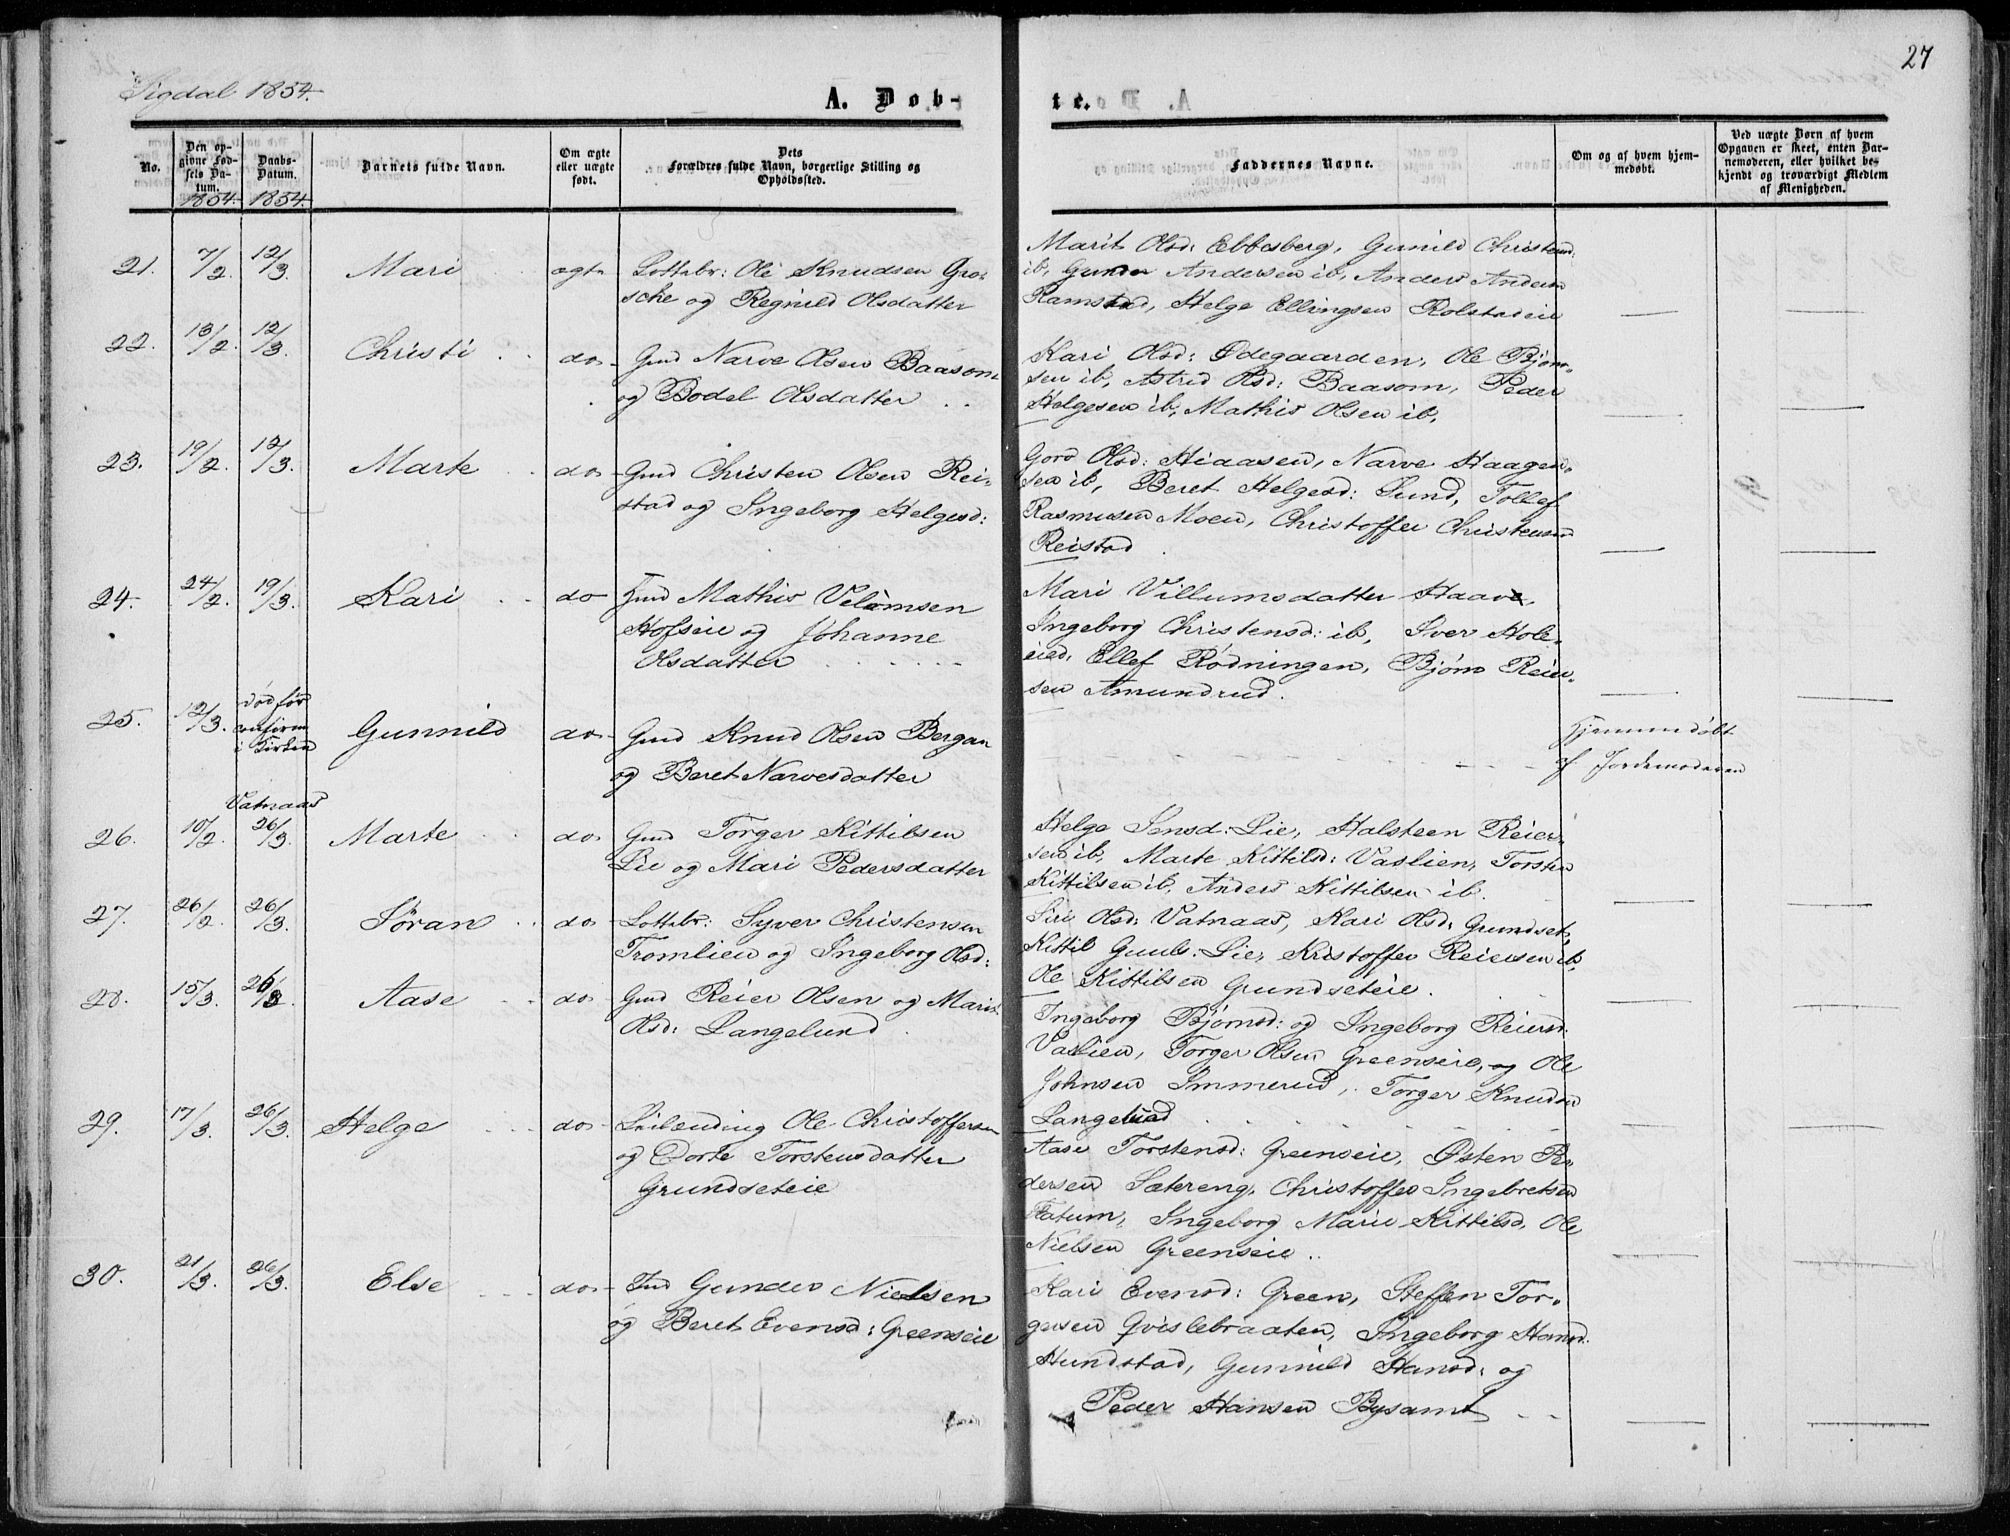 Sigdal 1854.
27
A. Døb-
te.
No.
Den op-
givne Fød-
sels Da-
tum.
1854.
Daabs-
Datum.
1854.
Barnets fulde Navn.
Om ægte
eller uægte
født.
Dets
Forældres fulde Navn, borgerlige Stilling og
Opholdssted.
Faddernes Navne.
Om og af hvem hjem-
medøbt.
Ved uægte Børn af hvem
Opgaven er skeet, enten Bar-
nemoderen, eller hvilket be-
kjendt og troværdigt Medlem
af Menigheden.
21. 7/2. 12/3. Mari ægte
Ole Knudsen Gro-
sche og Regnild Olsdatter
Marit Olsd: Ebbesberg, Gunild Christensd:
ib, Gunder Andersen ib, Anders Andersen
Ramstad, Helge Ellingsen Rolstadeie
22. 13/2. 12/3. Christi do
Gmd Narve Olsen Baasom
og Bodel Olsdatter
Kari Olsd: Ødegaarden, Ole Bjørn-
sen ib, Astrid Olsd: Baasom, Peder
Helgesen ib, Mathis Olsen ib.
23. 19/2. 12/3. Marte do
Gmd Christen Olsen Rei-
stad og Ingeborg Helgesd:
Goro Olsd: Hiaasen, Narve Haagen-
sen ib, Beret Helgesd: Lund, Tollef
Rasmusen Moen, Christoffer Christensen
Reistad
24. 24/2. 19/3. Kari do
Hmd Mathis Velomsen
Hofseie og Johanne
Olsdatter
Mari Villumsdatter Haave,
Ingeborg Christensd: ib, Iver Hole-
eied, Ellef Rødningen, Bjørn Reier-
sen Amundrud.
25. 12/3. død før
i Kirken Gunnild do
Gmd Knud Olsen Bergan
og Beret Narvesdatter
Hjemmedøbt
af Jordemoderen
Vatnaas
26. 10/2. 26/3. Marte do
Gmd Torger Kittilsen
Lie og Mari Pedersdatter
Helge Jensd: Lie, Halsteen Reier-
sen ib, Marte Kittilsd: Vaslien, Torsten
Kittilsen ib, Anders Kittilsen ib.
27. 26/2. 26/3. Søran do
Syver Christensen
Tromlien og Ingeborg Olsd:
Siri Olsd: Vatnaas, Kari Olsd: Grundset,
Kittil Gunls: Lie, Kristoffer Reiersen ib,
Ole Kittilsen Grundseteie.
28. 15/3. 26/3. Aase do
Gmd Reier Olsen og Marit
Olsd: Langelund
Ingeborg Bjørnsd: og Ingeborg Reiersd:
Vaslien, Torger Olsen Greenseie, og Ole
Johnsen Immerud, Torger Knudsen
Langelud
29. 17/3. 26/3. Helge do
Leilænding Ole Christoffersen
og Dorte Torstensdatter
Grundseteie
Aase Torstensd: Greenseie, Østen Pe-
dersen Sætereng, Christoffer Ingebretsen
Flatum, Ingeborg Marie Kittilsd, Ole
Nielsen Greenseie.
30. 21/3. 26/3. Else do
Gunder Nielsen
og Beret Evensd: Greenseie
Kari Evensd: Green, Steffen Tor-
gersen Qvislebraaten, Ingeborg Hansd:
Hundstad, Gunnild Hansd: og
Peder Hansen Bysamt